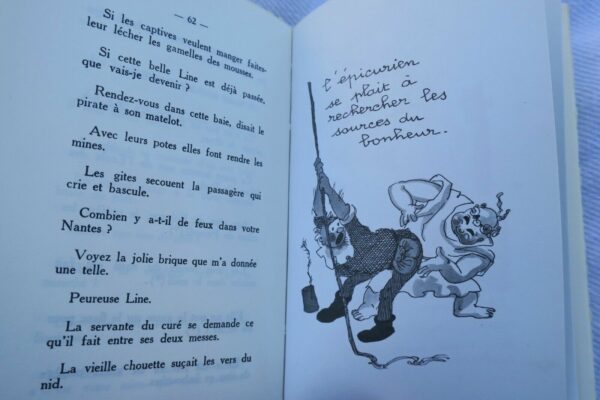 — 62 —
Si les captives veulent manger faites-
leur lécher les gamelles des mousses.
Si cette belle Line est déjà passée,
que vais-je devenir ?
Rendez-vous dans cette baie, disait le
pirate à son matelot.
Avec leurs potes elles font rendre les
mines.
Les gites secouent la passagère qui
crie et bascule.
Combien y a-t-il de feux dans votre
Nantes ?
Voyez la jolie brique que m'a donnée
une telle.
Peureuse Line.
La servante du curé se demande ce
qu'il fait entre ses deux messes.
La vieille chouette suçait les vers du
nid.
L'épicurien
se plait à
rechercher les
sources du
bonheur.